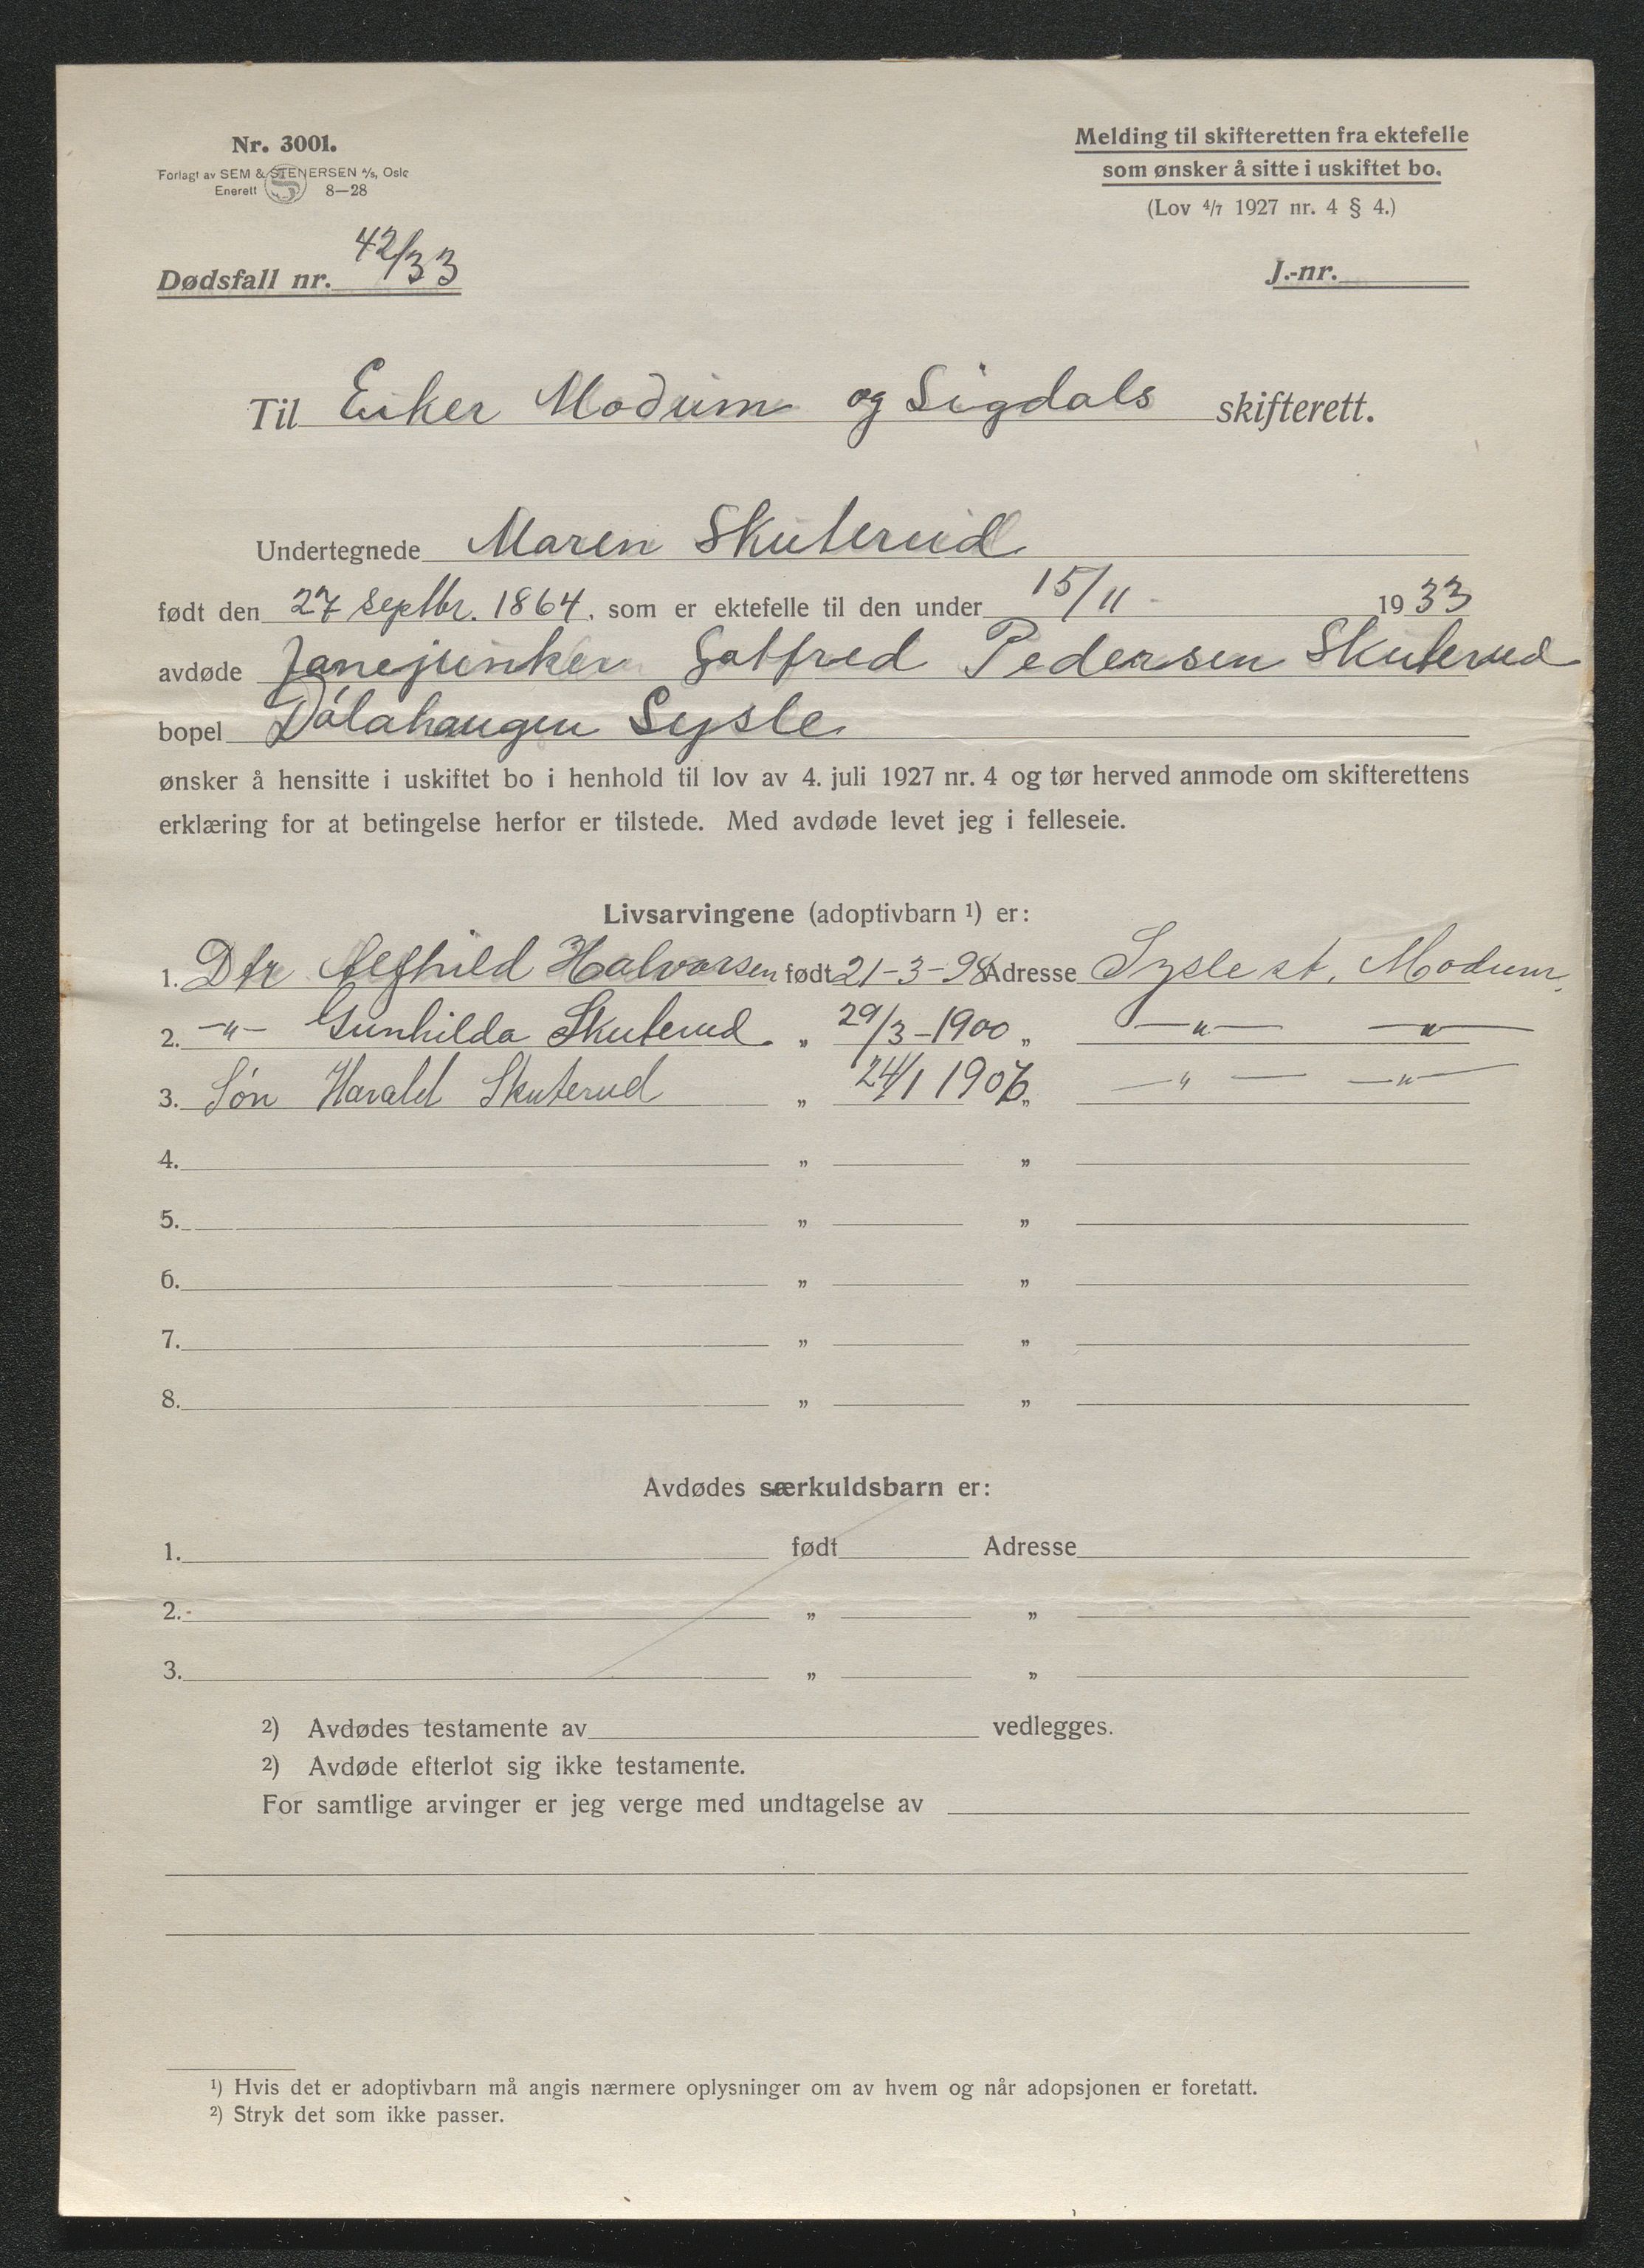 Nr. 3001.
Forlagt av SEM & STENERSEN A/S, Oslo
Enerett 8—28
Melding til skifteretten fra ektefelle
som ønsker å sitte i uskiftet bo.
(Lov 4/7 1927 nr. 4 § 4.)
Dødsfall nr. 42/33
J.-nr.
Til Eiker Modum og Sigdals skifterett.
Undertegnede Maren Skuterud
født den 27 Septbr. 1864, som er ektefelle til den under 15/11 - 1933
avdøde Pedersen Skuterud
bopel Dålahaugen Sysle
ønsker å hensitte i uskiftet bo i henhold til lov av 4. juli 1927 nr. 4 og tør herved anmode om skifterettens
erklæring for at betingelse herfor er tilstede. Med avdøde levet jeg i felleseie.
Livsarvingene (adoptivbarn 1) er:
1. Dtr Halvorsen født 21-3-98 Adresse Sysle st. Modum.
2. —"— Gunhilda Skuterud „ 29/3-1900 „ —"— —"—
3. Søn Harald Skuterud „ 24/1 1906 „ —"— —"—
4. „ „
5. „ „
6. „ „
7. „ „
8. „ „
Avdødes særkuldsbarn er:
1. født Adresse
2. „ „
3. „ „
2) Avdødes testamente av vedlegges.
2) Avdøde efterlot sig ikke testamente.
For samtlige arvinger er jeg verge med undtagelse av
1) Hvis det er adoptivbarn må angis nærmere oplysninger om av hvem og når adopsjonen er foretatt.
2) Stryk det som ikke passer.